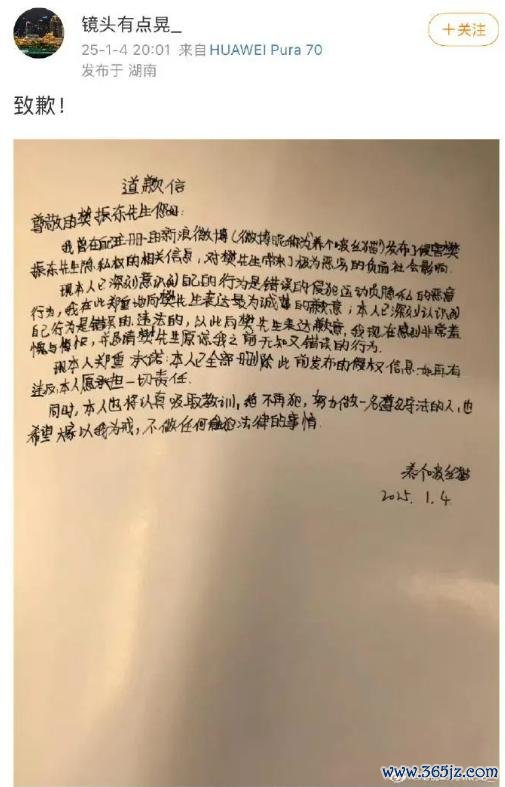 镜头有点晃_
+关注
25-1-4 20:01 来自 HUAWEI Pura 70
发布于 湖南
致歉！
道歉信
尊敬的樊振东先生您好:
我曾在 注册的新浪微博(微博昵称为养个啵丝猫)发布了侵害樊
振东先生隐私权的相关信息，对樊先生带来了极为恶劣的负面社会影响.
现本人已深刻意识到自己的行为是错误的侵犯运动员隐私的恶意
行为，我在此郑重地向樊先生表达最为诚挚的歉意；本人已深刻认识到
自己行为是错误的、违法的，以此向樊先生表达歉意，我现在感到非常羞
愧与悔 ，并恳请樊先生原谅我之前无知又错误的行为.
现本人郑重承诺：本人已全部删除此前发布的侵权信息.如再有
违反,本人愿承担一切责任.
同时，本人也将认真吸取教训，绝不再犯，努力做一名遵纪守法的人，也
希望大家以我为戒，不做任何触犯法律的事情.
养个啵丝猫
2025. 1. 4
www.365jz.com